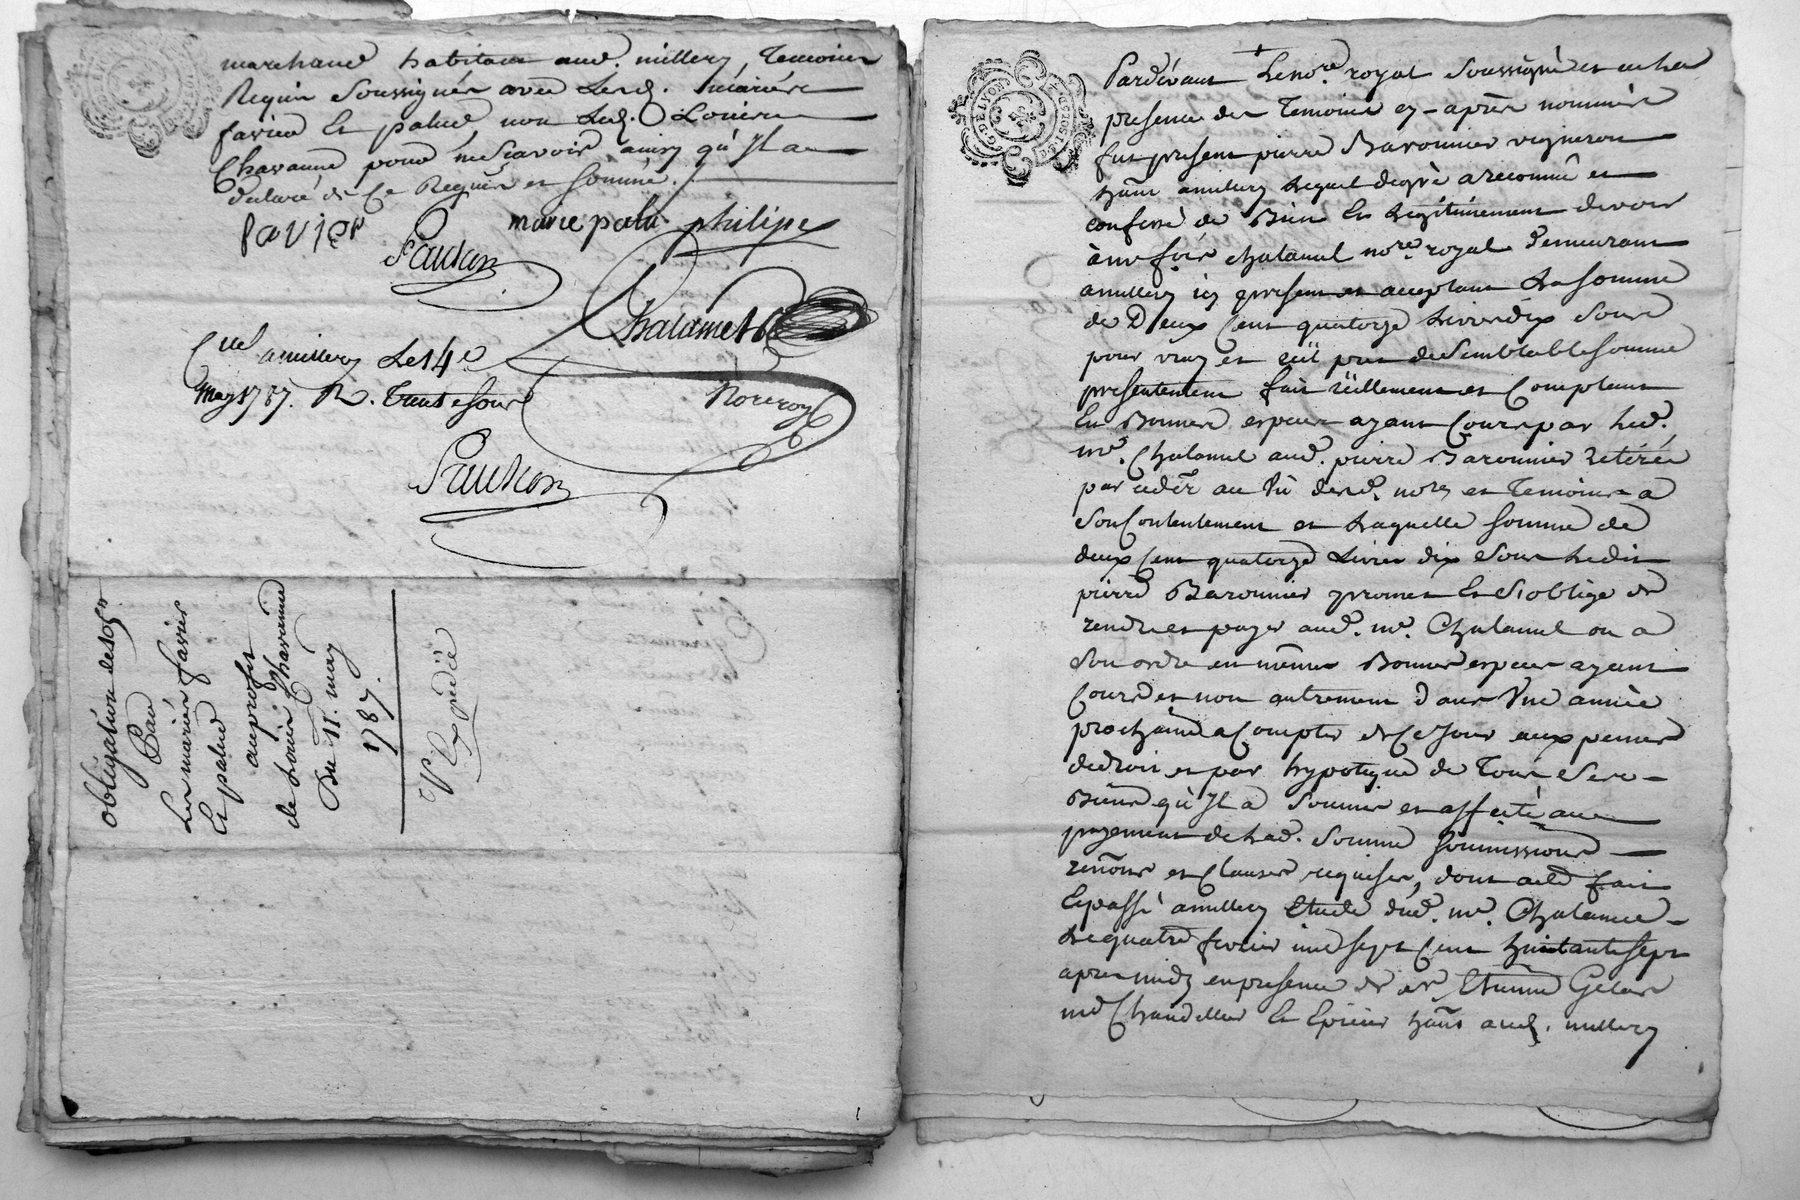 marchand habitant aud. millery, Temoins
Requis Soussignés avec Lesd. mariés
favier Et palud non Led. Louis
Chavanne pour ne Scavoir ainsy qu'Il a
declaré de Ce Requis et Sommé.
favier
marie palu philipe
Pauson
Chalamel
Nore roy
C.lé a millery Le 14e
may 1787. R. Trente sous
Pauson
obligation de 107#
Par
Les mariés favier
Et palud
au profit
de Louis Chavanne
Du 11. may
1787.
Expédiée
G. DE LYON
Pardevant Le no.re royal Soussigné et en la
presence des Temoins cy-après nommés
fut present pierre Baronnier vigneron
hānt a millery Lequel de gré a reconnû et
confessé de Bien Et Légitimement devoir
à me chalamel no.re royal demeurant
a millery icy present et acceptant La Somme
de Deux Cent quatorze Livres dix Sous
pour vray et réel prêt de Semblable Somme
presentement fait réellement et Comptant
En Bonnes especes ayant Cours par Led.
me. Chalamel aud. pierre Baronnier retirée
par icelui au Vû desd. no.re et Temoins a
Son Contentement et Laquelle Somme de
deux Cent quatorze Livres dix Sous Ledit
pierre Baronnier promet Et S'oblige de
rendre et payer aud. me. Chalamel ou a
Son ordre en mêmes Bonnes especes ayant
Cours et non autrement Dans Une année
prochaine a Compter de Ce Jour aux peines
de droit et par hypoteque de Tous Ses-
Biens qu'Il a Soumis et affecté au
payement de Lad. Somme Soumissions
renōns et Clauses requises, dont acte fait
Et passé a millery Etude dud. me. Chalamel-
Le quatre fevrier mil Sept Cent huitante Sept
après midy en presence de Sr Etienne Gelas
md Chandellier Et Epicier hānt aud. millery